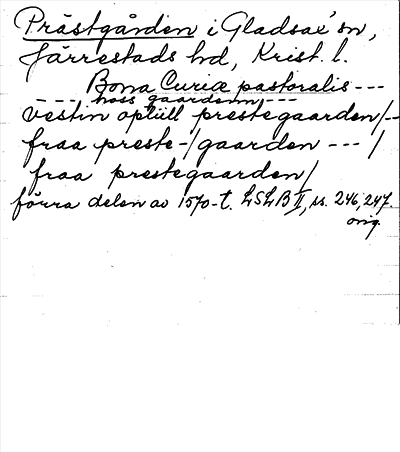 Prästgården i Gladsax' sn,
Järrestads hd, Krist. l.
Bona Curiæ pastoralis ---
---- hoss gaardenn/ ---
vestin optill prestegaarden/--
fraa preste-/gaarden --- /
fraa prestegaarden/
förra delen av 1570-t. LSLB II, ss. 246, 247.
orig.